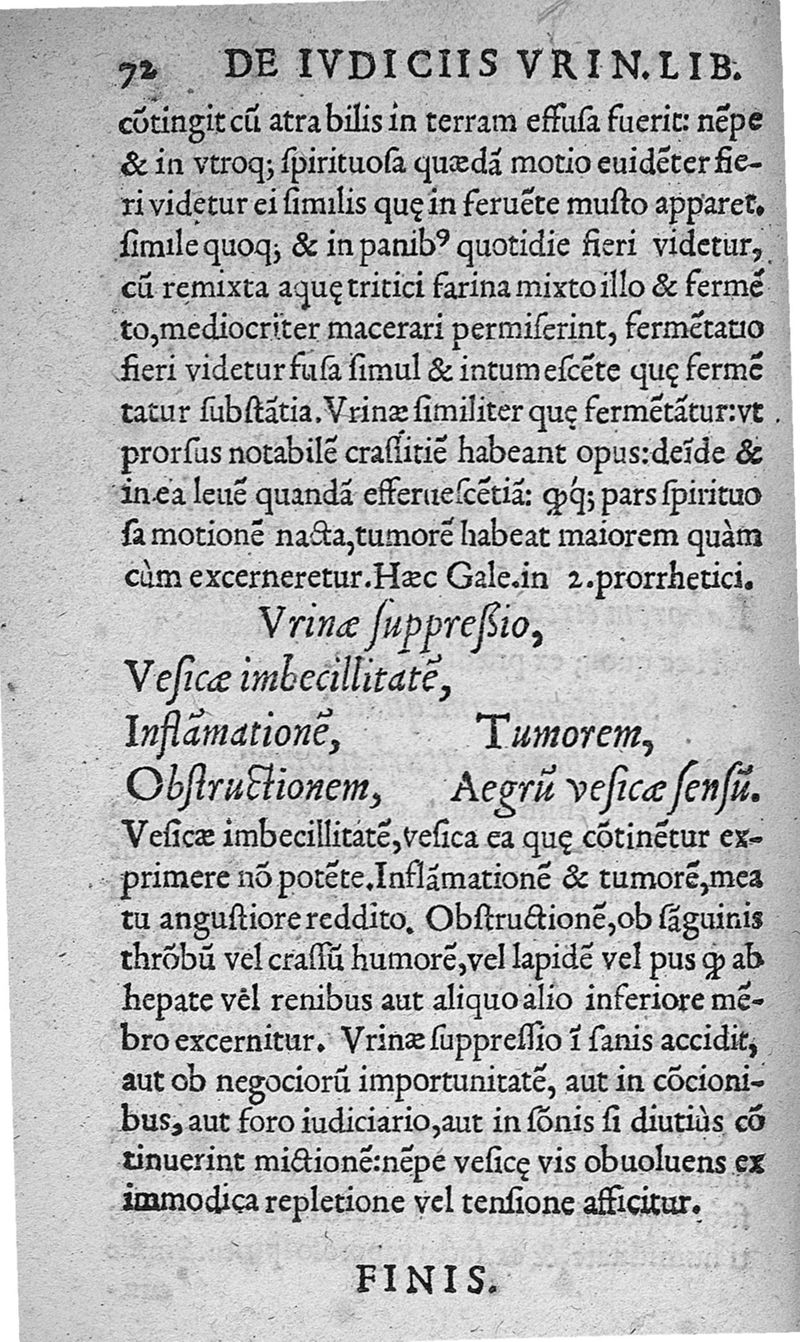 72 DE IVDICIIS VRIN. LIB.
cõtingit cũ atra bilis in terram effuſa fuerit: nẽpe
& in vtroq; ſpirituoſa quædã motio euidẽter fie-
ri videtur ei ſimilis quę in feruẽte muſto apparet.
ſimile quoq; & in panibꝰ quotidie fieri videtur,
cũ remixta aquę tritici farina mixto illo & fermẽ
to, mediocriter macerari permiſerint, fermẽtatio
fieri videtur fuſa ſimul & intumeſcẽte quę fermẽ
tatur ſubſtãtia. Vrinæ ſimiliter quę fermẽtãtur: vt
prorſus notabilẽ craſſitiẽ habeant opus: deĩde &
in ea leuẽ quandã efferueſcẽtiã: ꝙq́; pars ſpirituo
ſa motionẽ nacta, tumorẽ habeat maiorem quàm
cùm excerneretur. Hæc Gale. in 2. prorrhetici.
Vrinæ ſuppreßio,
Veſicæ imbecillitatẽ,
Inflãmationẽ, Tumorem,
Obſtructionem, Aegrũ veſicæ ſenſũ.
Veſicæ imbecillitatẽ, veſica ea quę cõtinẽtur ex-
primere nõ potẽte. Inflãmationẽ & tumorẽ, mea
tu anguſtiore reddito. Obſtructionẽ, ob ſãguinis
thrõbũ vel craſſũ humorẽ, vel lapidẽ vel pus ꝙ ab
hepate vel renibus aut aliquo alio inferiore mẽ-
bro excernitur. Vrinæ ſuppreſſio ĩ ſanis accidit,
aut ob negociorũ importunitatẽ, aut in cõcioni-
bus, aut foro iudiciario, aut in ſõnis ſi diutiùs cõ
tinuerint mictionẽ: nẽpe veſicę vis obuoluens ex
immodica repletione vel tenſione afficitur.
FINIS.